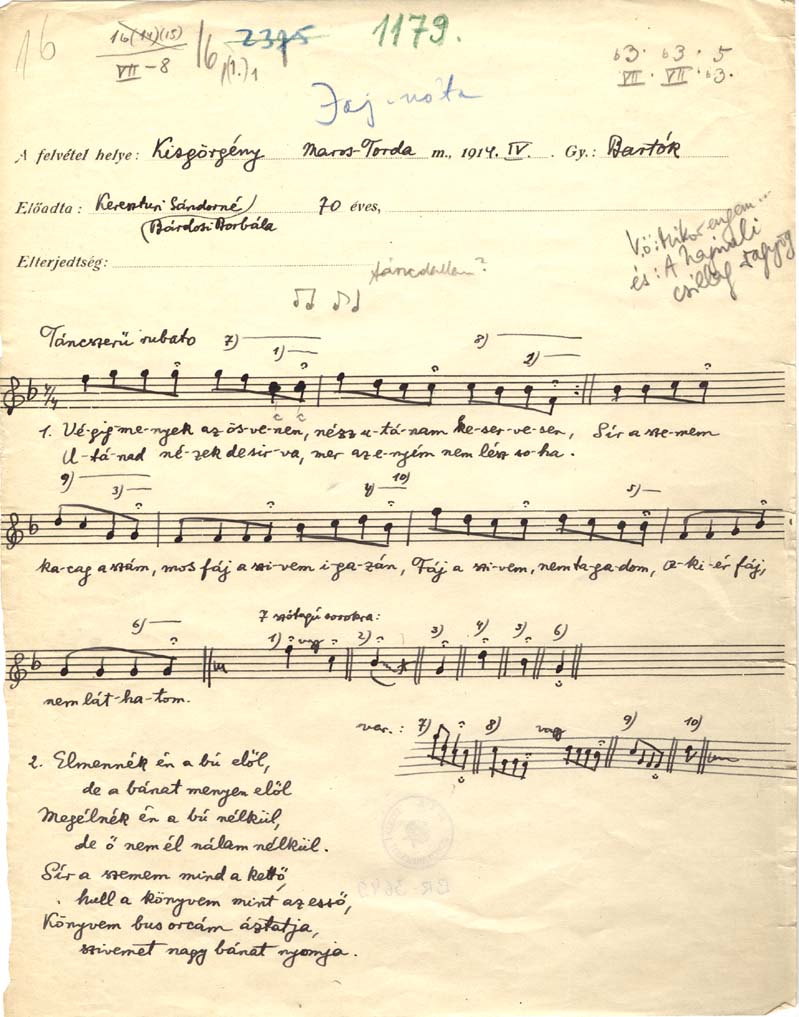 16
16(14)(15)
VII-8
16
1(1.)1
2375
1179.
♭3. ♭3. 5
VII. VII. ♭3.
Jaj-nóta
A felvétel helye: Kisgörgény Maros-Torda m., 1914. IV. Gy.: Bartók
Előadta: Kereszturi Sándorné 70 éves,
(Bárdosi Borbála
Elterjedtség:
táncdallam?
V.ö.: Mikor engem...
és: A hajnali
csillag ragyog
Táncszerű rubato 7) 1) 8) 2)
4/4
1. Vé-gig me-nyek az ös-ve-nen, nézz u-tá-nam ke-ser-ve-sen, Sír a sze-mem
U-tá-nad né-zek de sir-va, mer az e-nyém nem lész so-ha.
9) 3) 4) 10) 5)
ka-cag a szám, mos fáj a szi-vem i-ga-zán, Fáj a szi-vem, nem ta-ga-dom, a-ki-ér fáj,
6) 7 szótagú sorokra:
1) vagy 2) 3) 4) 5) 6)
nem lát-ha-tom.
var.: 7) 8) vagy 9) 10)
2. Elmennék én a bú elől,
de a bánat menyen elöl
Megélnék én a bú nélkül,
de ő nem él nálam nélkül.
Sír a szemem mind a kettő,
hull a könyvem mint az esső,
Könyvem bus orcám áztatja,
szivemet nagy bánat nyomja.